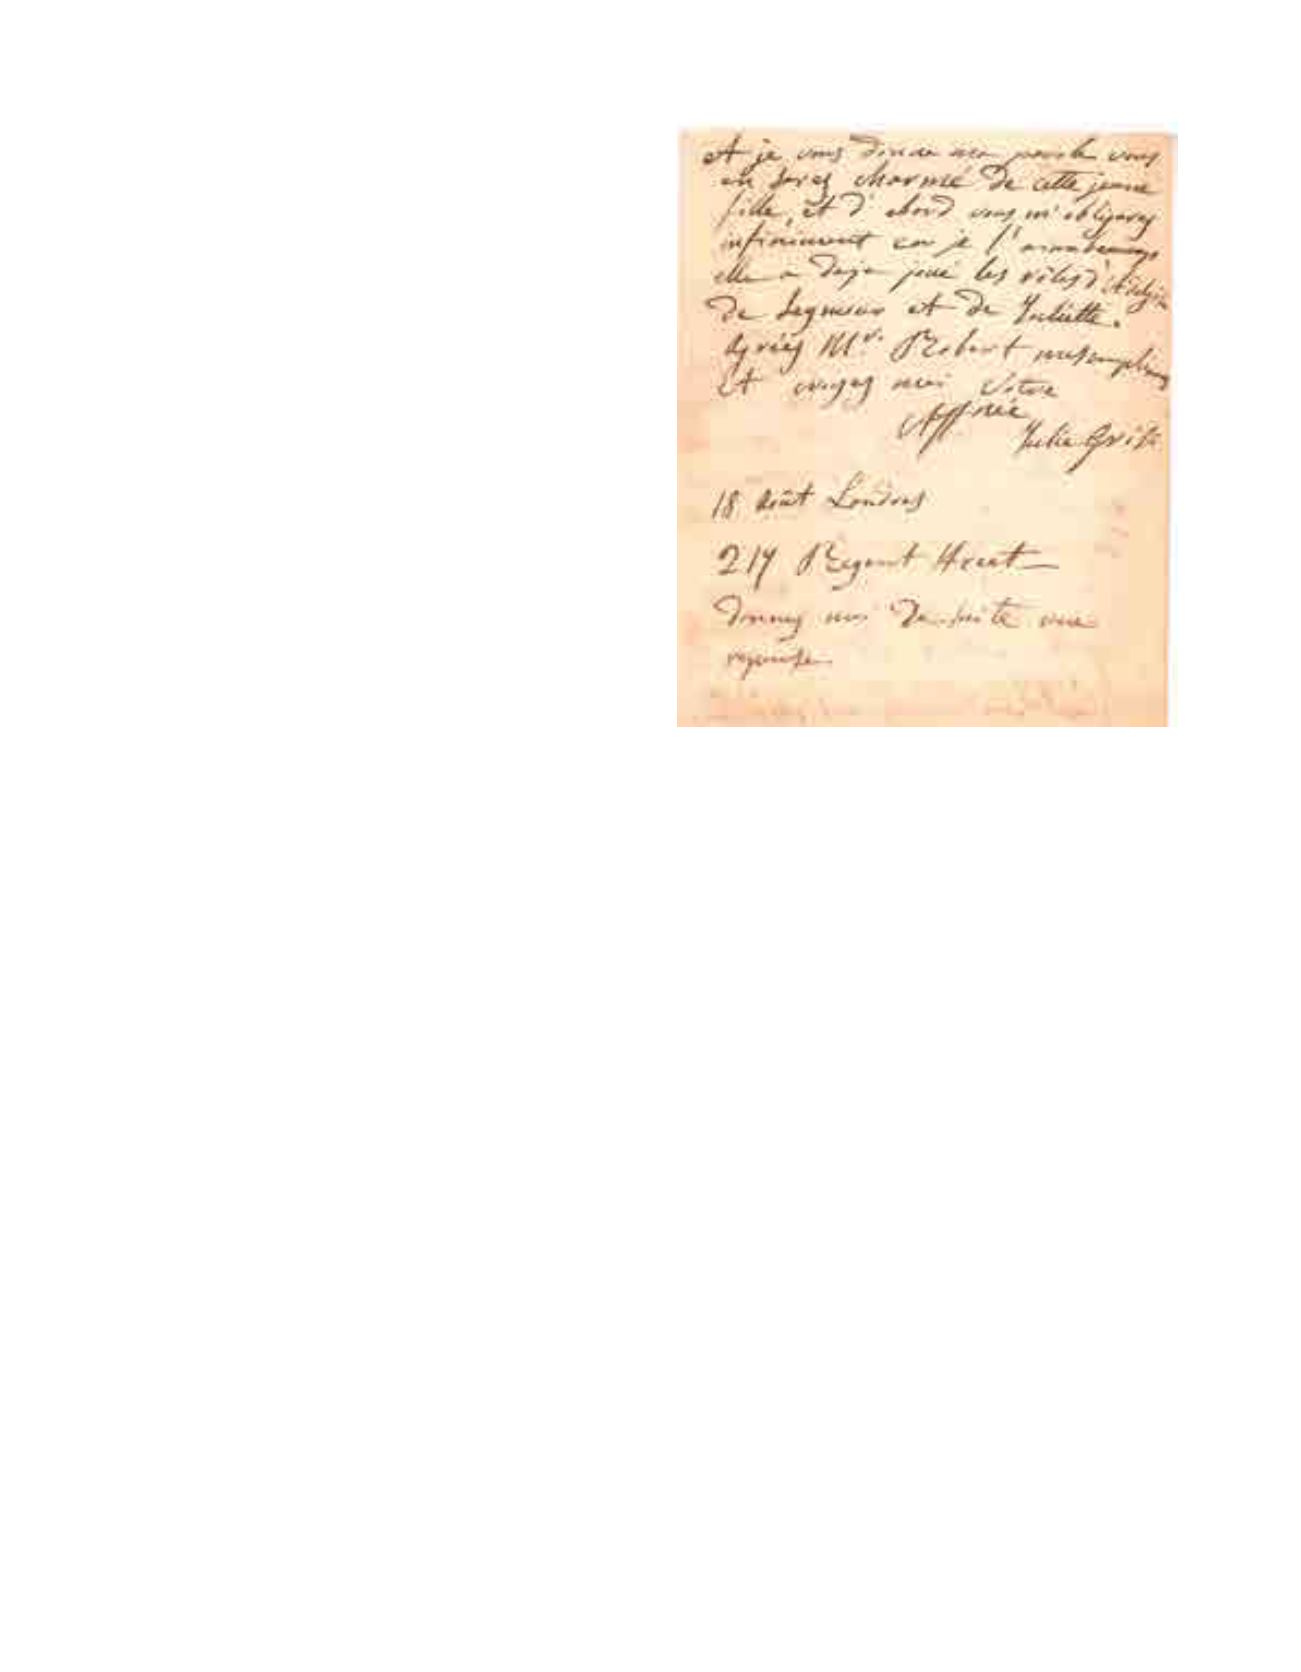 et je vous donne ma parole vous
en serez charmé de cette jeune
fille, et d'abord vous m'obligerez
infiniment car je l'
elle a deja joué les rôles d'Adalgisa
de Seymour et de Juliette.
Agréez Mr. Robert mes compliments
et croyez moi Votre
Affnée
Julie Grisi
18 Août Londres
217 Regent Street
donnez moi de suite une
reponse